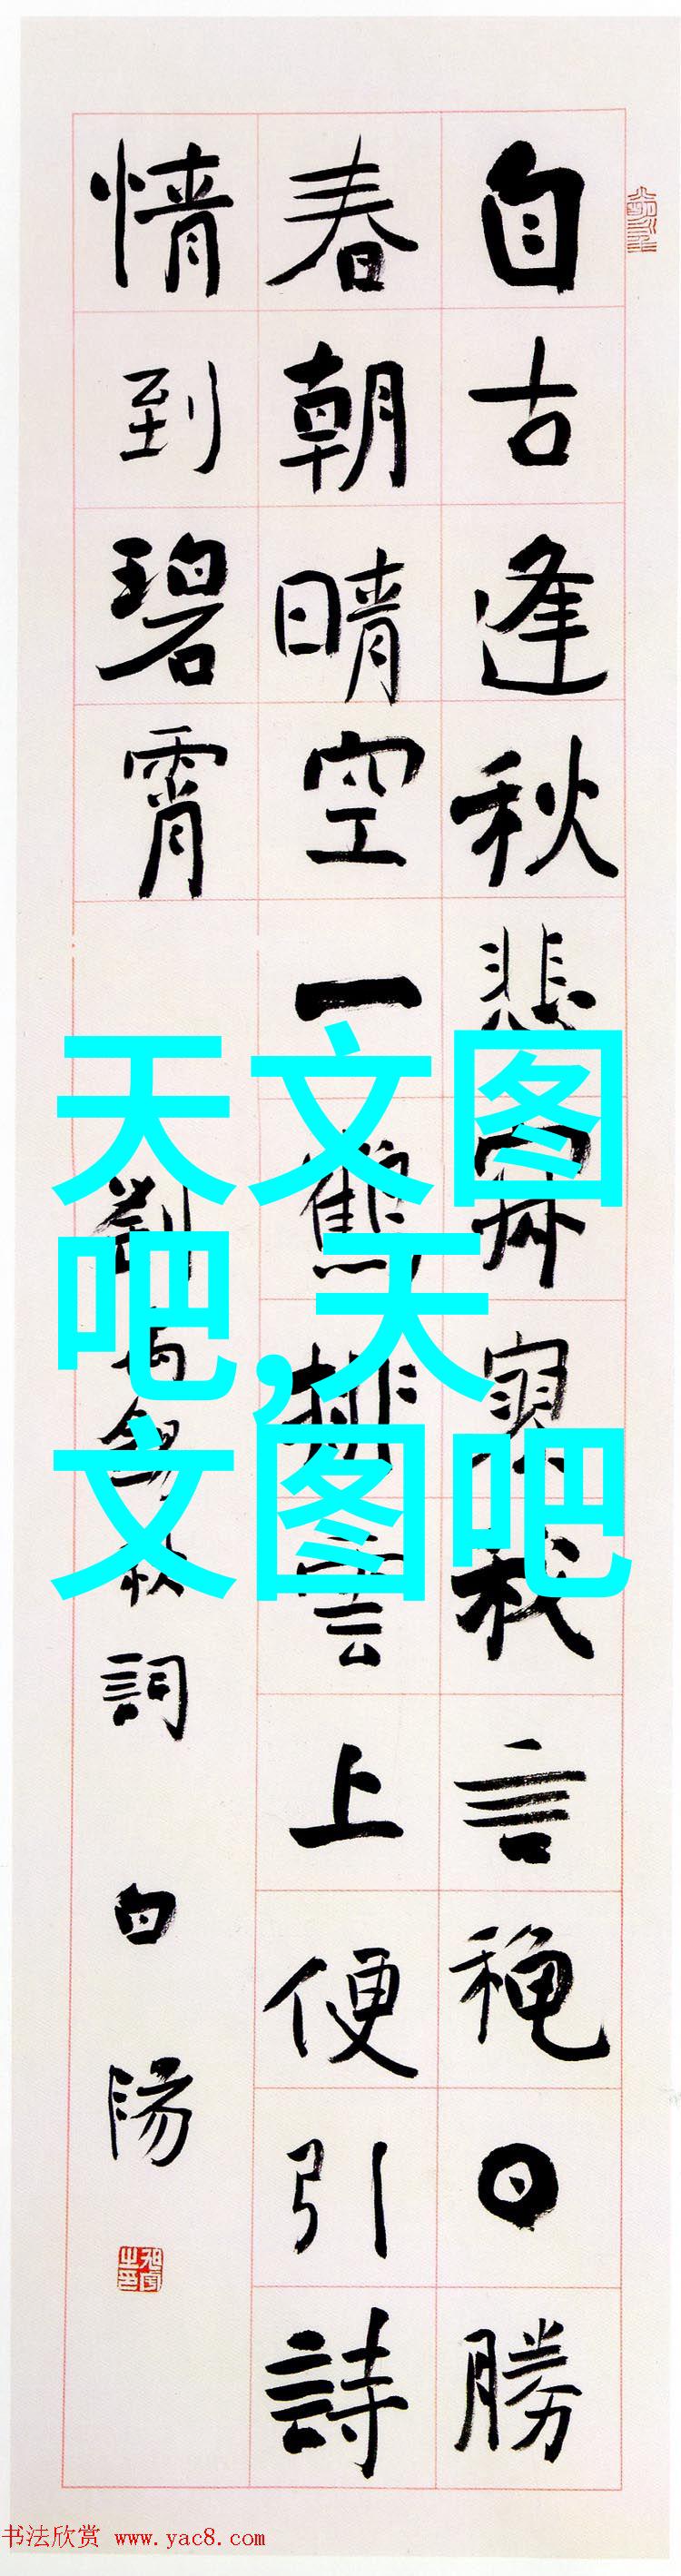 自古逢秋悲寂寥我言秋日勝
春朝晴空一鶴排雲上便引詩
情到碧霄
劉禹錫秋詞 白陽
天文图
吧,天
文图吧
书法欣赏 www.yac8.com